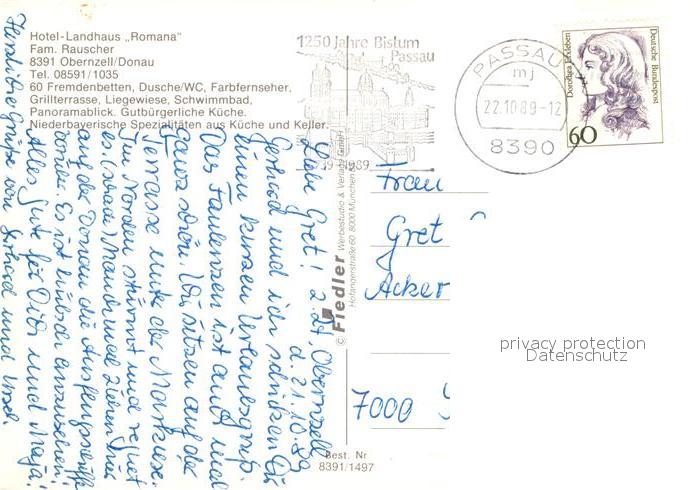 Hotel-Landhaus „Romana"
Fam. Rauscher
8391 Obernzell/Donau
Tel. 08591/1035
60 Fremdenbetten, Dusche/WC, Farbfernseher,
Grillterrasse, Liegewiese, Schwimmbad,
Panoramablick. Gutbürgerliche Küche.
Niederbayerische Spezialitäten aus Küche und Keller.
1250 Jahre Bistum
Passau
739-1989
PASSAU
mj
22.10.89-12
8390
Dorothea Erxleben
Deutsche Bundespost
60
z. Zt. Obernzell
d. 21.10.89
Liebe Gret!
Gerhard und ich schicken Dir
einen kurzen Urlaubsgruß.
Das Faulenzen ist auch mal
ganz schön. Wir sitzen auf der
Terrasse unter der Markise.
Im Norden stürmt und regnet
es (sagt Man). Manchmal ziehen
auf der Donau die Ausflugsschiffe
vorbei. Es ist hübsch anzusehen!
Alles Gute für Dich und Maja!
Herzliche Grüße von Gerhard und Ursel.
© Fiedler Werbestudio & Verlag GmbH
Hofangerstraße 60, 8000 München
Best. Nr.
8391/1497
Frau
Gret
Acker
7000
privacy protection
Datenschutz